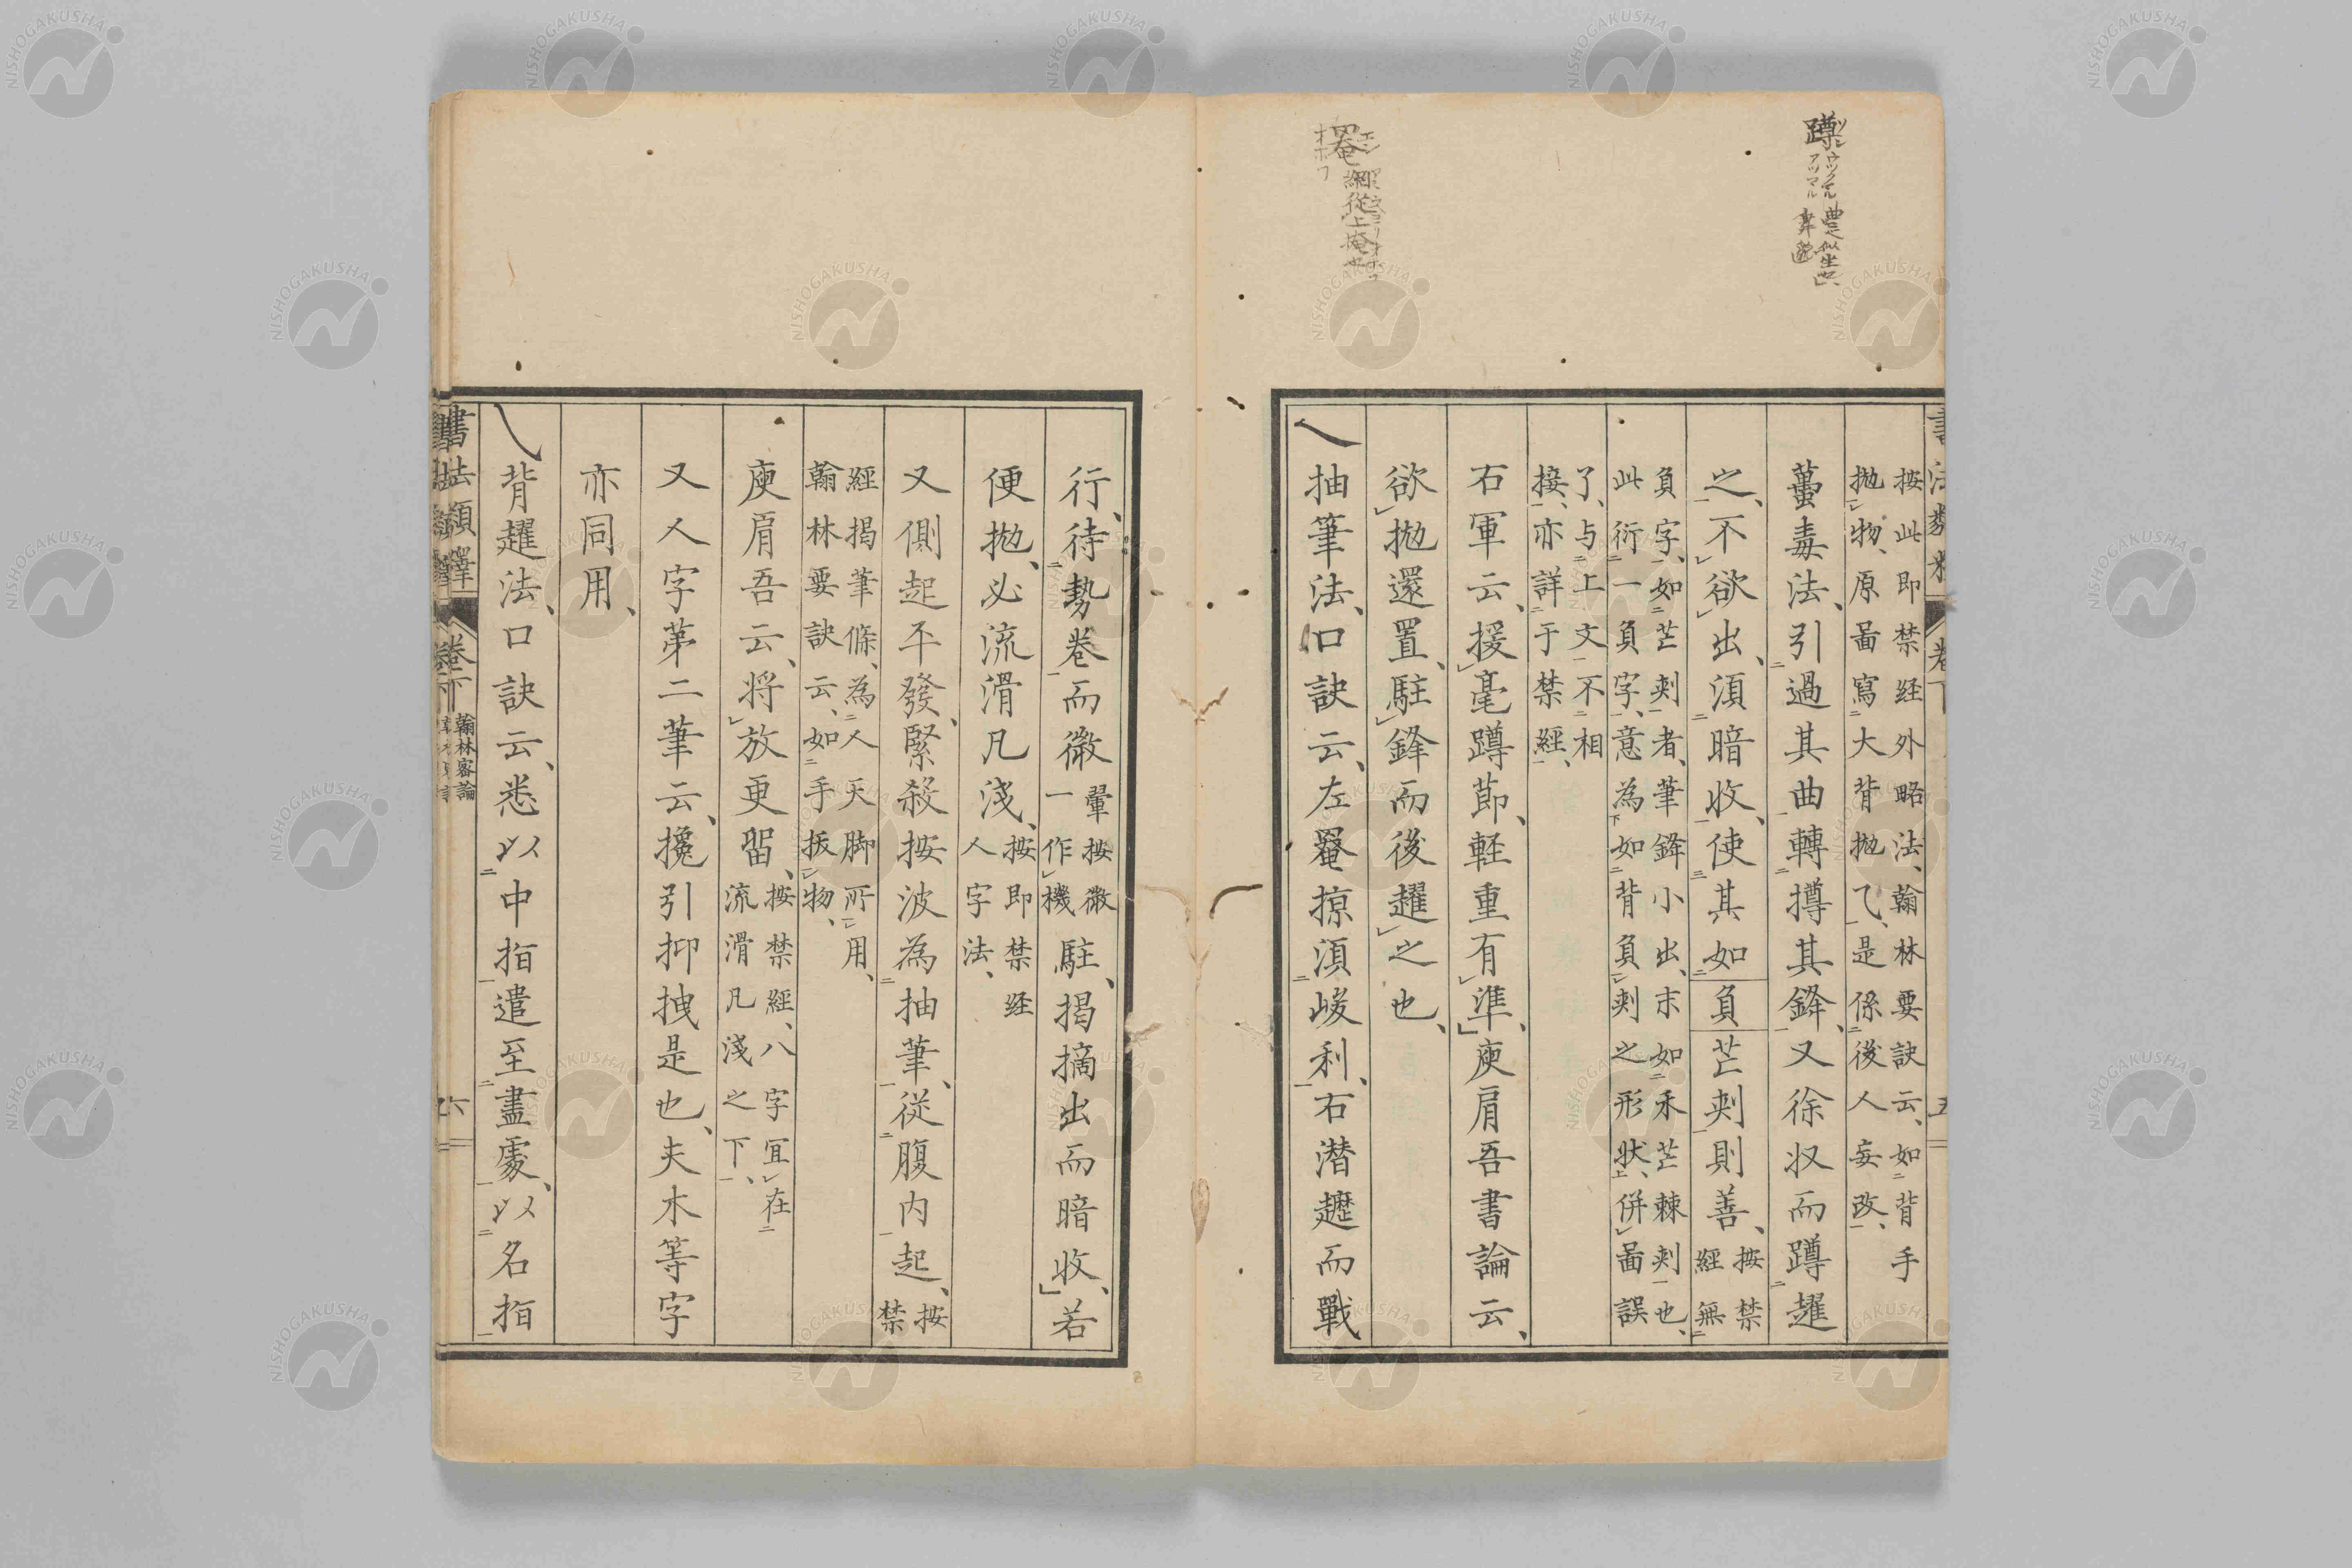 蹲
按此即禁経外略法、翰林要訣云、如背手
拋物、原啚寫大背拋乀、是係後人妄改、
蠆毒法、引過其曲轉撙其鋒、又徐収而蹲趯
之、不欲出、須暗收、使其如負芒刺則善、
按禁
經無
負字、如芒刺者、筆鋒小出、末如禾芒棘刺也、
此衍一負字、意為如背負刺之形狀、併啚誤
了、与上文不相
接、亦詳于禁經、
右軍云、援毫蹲節、軽重有準、庾肩吾書論云、
欲拋還置、駐鋒而後趯之也、
㇏抽筆法、口訣云、左罨掠須峻利、右潜趯而戰
罨
網從上掩也
行、待勢卷而徽
翬
一
按徽
作機
駐、揭摘出而暗收、若
便拋、必流滑凡淺、
按即禁経
人字法、
又側起平發、緊殺按波為抽筆、從腹内起、
按
禁
經揭筆條、為人天脚所用、
翰林要訣云、如手扳物、
庾肩吾云、将放更畱、
按禁經、八字宜在
流滑凡淺之下、
又人字第二筆云、攙引抑拽是也、夫木等字
亦同用、
㇏背趯法、口訣云、悉以中指遣至盡處、以名指
書法類釋
卷下
翰林密論
六
NISHOGAKUSHA